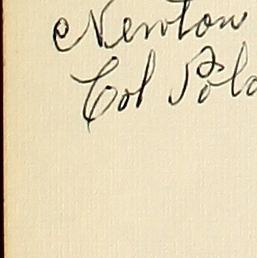 Newton
Col Polo